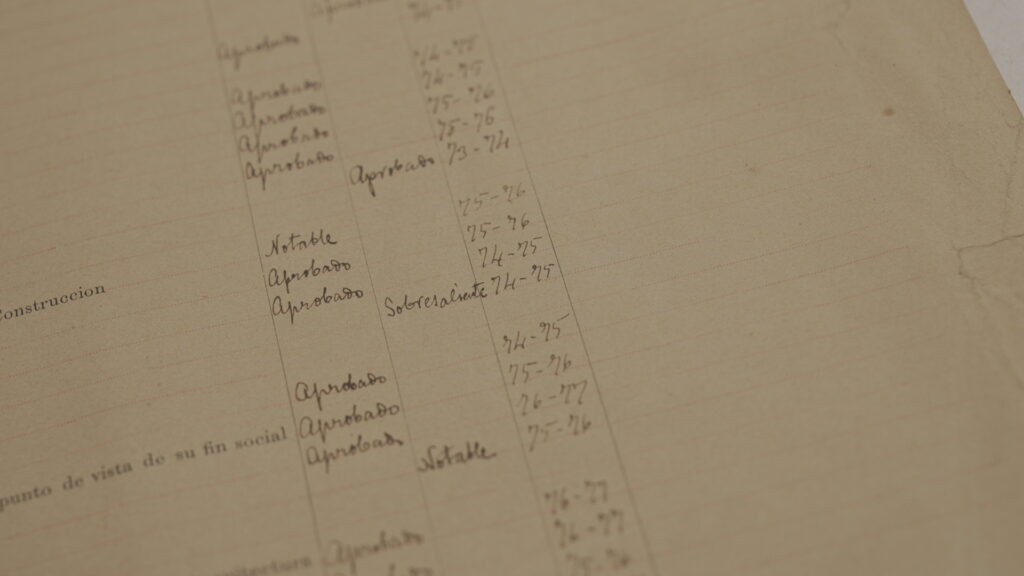 Aprobado
Aprobado 74-75
Aprobado 74-75
Aprobado 75-76
Aprobado 75-76
Aprobado 73-74
Construccion Notable 75-76
Aprobado 75-76
Aprobado 74-75
Sobresaliente 74-75
Aprobado 74-75
punto de vista de su fin social Aprobado 75-76
Aprobado 76-77
Notable 75-76
Aprobado 76-77
76-77